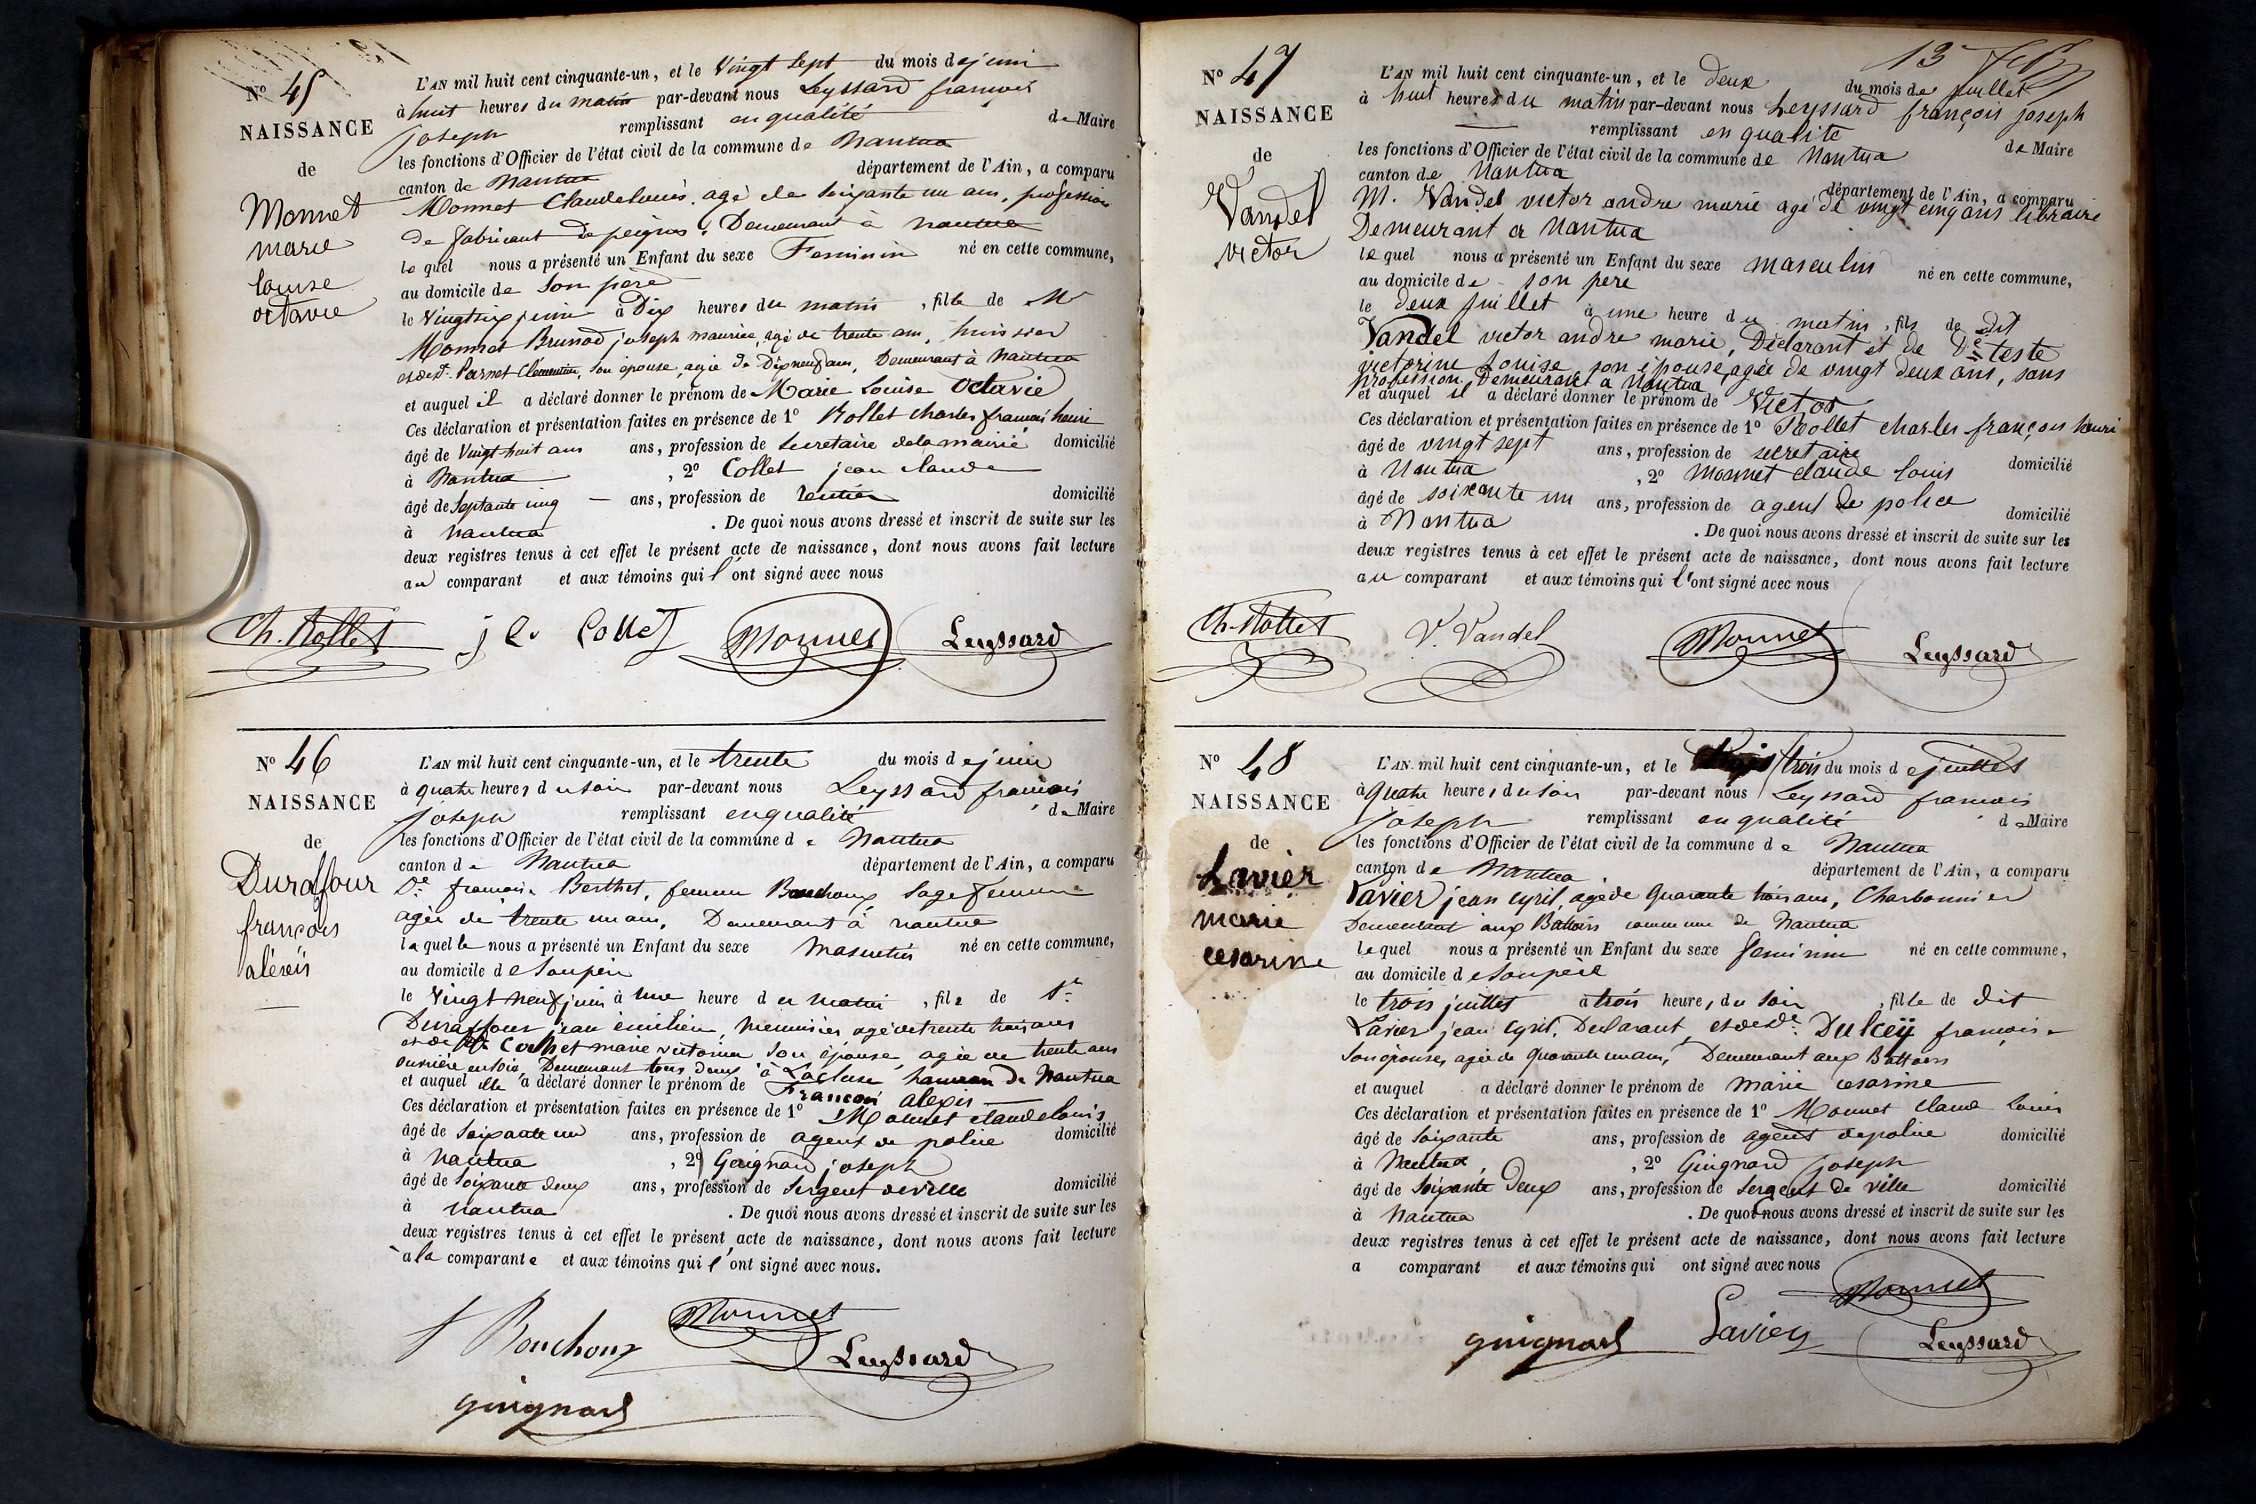 Nº 45
NAISSANCE
de
Monnet
marie
louise
octavie
L'AN mil huit cent cinquante-un, et le Vingt Sept du mois de juin
à huit heures du matin par-devant nous Leyssard françois
joseph remplissant en qualité de Maire
les fonctions d'Officier de l'état civil de la commune de Nantua
canton de Nantua département de l'Ain, a comparu
Monnet Claude Louis, agé de soixante un ans, profession
de fabricant de peignes, Demeurant à nantua
lequel nous a présenté un Enfant du sexe Feminin né en cette commune,
au domicile de son père
le Vingt six juin à Dix heures du matin, fille de Mr
Monnet Brunod joseph maurice, agé de trente ans, huissier
et de De Pernet Clementine, son épouse, agée de Dix neuf ans, Demeurant à Nantua
et auquel il a déclaré donner le prénom de Marie Louise Octavie
Ces déclaration et présentation faites en présence de 1º Rollet charles françois henri
âgé de Vingt huit ans ans, profession de secretaire de la mairie domicilié
à Nantua, 2º Collet jean claude
âgé de Septante cinq — ans, profession de rentier domicilié
à nantua. De quoi nous avons dressé et inscrit de suite sur les
deux registres tenus à cet effet le présent acte de naissance, dont nous avons fait lecture
au comparant et aux témoins qui l'ont signé avec nous
Ch. Rollet j C. Collet Monnet Leyssard
Nº 46
NAISSANCE
de
Duraffour
françois
alexis
L'AN mil huit cent cinquante-un, et le trente du mois de juin
à quatre heures du soir par-devant nous Leyssard françois
joseph remplissant en qualité de Maire
les fonctions d'Officier de l'état civil de la commune de Nantua
canton de Nantua département de l'Ain, a comparu
De françoise Berthet, femme Bouchoux sage femme
agée de trente un ans, Demeurant à nantua
laquelle nous a présenté un Enfant du sexe masculin né en cette commune,
au domicile de son père
le Vingt neuf juin à une heure du matin, fils de Sr
Duraffour jean émilien, menuisier agé de trente trois ans
et de De Cochet marie victorine son épouse, agée de trente ans
ouvrière en soie, Demeurant tous deux à Lacluse hameau de Nantua
et auquel elle a déclaré donner le prénom de François alexis
Ces déclaration et présentation faites en présence de 1º Monnet claude louis
âgé de soixante un ans, profession de agent de police domicilié
à Nantua, 2º Guignard joseph
âgé de soixante deux ans, profession de sergent de ville domicilié
à nantua. De quoi nous avons dressé et inscrit de suite sur les
deux registres tenus à cet effet le présent acte de naissance, dont nous avons fait lecture
à la comparante et aux témoins qui l'ont signé avec nous.
f Bouchoux Monnet Leyssard
guignard
13
Nº 47
NAISSANCE
de
Vandel
victor
L'AN mil huit cent cinquante-un, et le deux du mois de juillet
à huit heures du matin par-devant nous Leyssard françois joseph
— remplissant en qualité de Maire
les fonctions d'Officier de l'état civil de la commune de Nantua
canton de Nantua département de l'Ain, a comparu
M. Vandel victor andre marie agé de vingt cinq ans libraire
Demeurant a Nantua
lequel nous a présenté un Enfant du sexe masculin né en cette commune,
au domicile de son pere
le deux juillet à une heure du matin, fils de dit
Vandel victor andre marie, Déclarant et de De teste
victorine Louise son épouse, agée de vingt deux ans, sans
profession, Demeurant a Nantua
et auquel il a déclaré donner le prénom de Victor
Ces déclaration et présentation faites en présence de 1º Rollet charles françois henri
âgé de vingt sept ans, profession de secretaire domicilié
à Nantua, 2º Monnet claude louis
âgé de soixante un ans, profession de agent de police domicilié
à Nantua. De quoi nous avons dressé et inscrit de suite sur les
deux registres tenus à cet effet le présent acte de naissance, dont nous avons fait lecture
au comparant et aux témoins qui l'ont signé avec nous
Ch. Rollet V. Vandel Monnet Leyssard
Nº 48
NAISSANCE
de
Lavier
marie
cesarine
L'AN mil huit cent cinquante-un, et le trois du mois de juillet
à quatre heures du soir par-devant nous Leyssard francois
joseph remplissant en qualité de Maire
les fonctions d'Officier de l'état civil de la commune de Nantua
canton de Nantua département de l'Ain, a comparu
Lavier jean cyril, agé de quarante trois ans, Charbonnier
Demeurant aux Battoirs commune de Nantua
lequel nous a présenté un Enfant du sexe feminin né en cette commune,
au domicile de son père
le trois juillet à trois heures du soir, fille de dit
Lavier jean cyril, Declarant, et de De Dulcey françoise
son épouse, agée de quarante un ans, Demeurant aux Battoirs
et auquel a déclaré donner le prénom de marie cesarine
Ces déclaration et présentation faites en présence de 1º Monnet Claude Louis
âgé de soixante ans, profession de agent de police domicilié
à Nantua, 2º Guignard joseph
âgé de soixante deux ans, profession de sergent de ville domicilié
à Nantua. De quoi nous avons dressé et inscrit de suite sur les
deux registres tenus à cet effet le présent acte de naissance, dont nous avons fait lecture
a comparant et aux témoins qui ont signé avec nous
guignard Lavier Monnet Leyssard